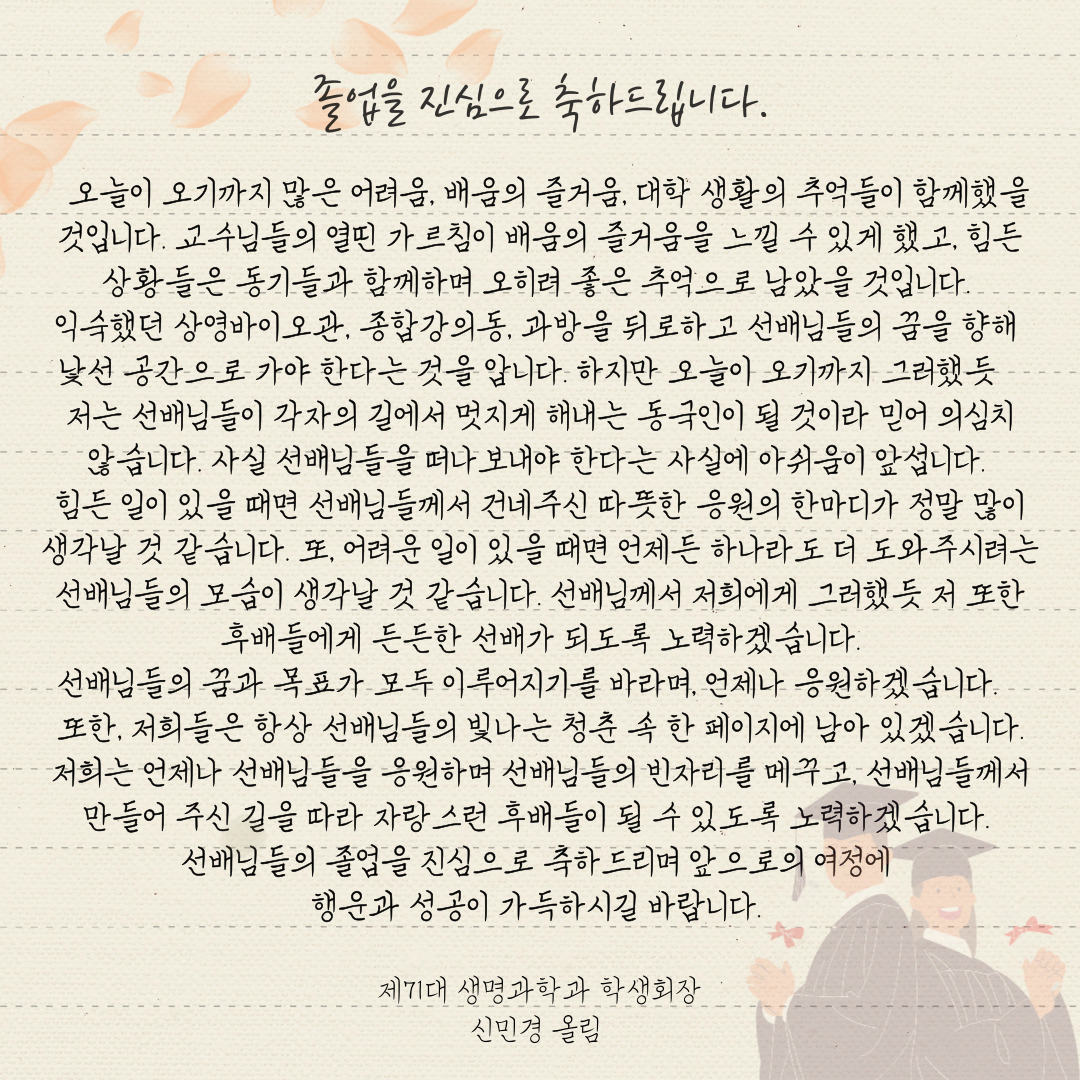 졸업을 진심으로 축하드립니다.
오늘이 오기까지 많은 어려움, 배움의 즐거움, 대학 생활의 추억들이 함께했을
것입니다. 교수님들의 열띤 가르침이 배움의 즐거움을 느낄 수 있게 했고, 힘든
상황들은 동기들과 함께하며 오히려 좋은 추억으로 남았을 것입니다.
익숙했던 상영바이오관, 종합강의동, 과방을 뒤로하고 선배님들의 꿈을 향해
낯선 공간으로 가야 한다는 것을 압니다. 하지만 오늘이 오기까지 그러했듯
저는 선배님들이 각자의 길에서 멋지게 해내는 동국인이 될 것이라 믿어 의심치
않습니다. 사실 선배님들을 떠나보내야 한다는 사실에 아쉬움이 앞섭니다.
힘든 일이 있을 때면 선배님들께서 건네주신 따뜻한 응원의 한마디가 정말 많이
생각날 것 같습니다. 또, 어려운 일이 있을 때면 언제든 하나라도 더 도와주시려는
선배님들의 모습이 생각날 것 같습니다. 선배님께서 저희에게 그러했듯 저 또한
후배들에게 든든한 선배가 되도록 노력하겠습니다.
선배님들의 꿈과 목표가 모두 이루어지기를 바라며, 언제나 응원하겠습니다.
또한, 저희들은 항상 선배님들의 빛나는 청춘 속 한 페이지에 남아 있겠습니다.
저희는 언제나 선배님들을 응원하며 선배님들의 빈자리를 메꾸고, 선배님들께서
만들어 주신 길을 따라 자랑스런 후배들이 될 수 있도록 노력하겠습니다.
선배님들의 졸업을 진심으로 축하드리며 앞으로의 여정에
행운과 성공이 가득하시길 바랍니다.
제71대 생명과학과 학생회장
신민경 올림